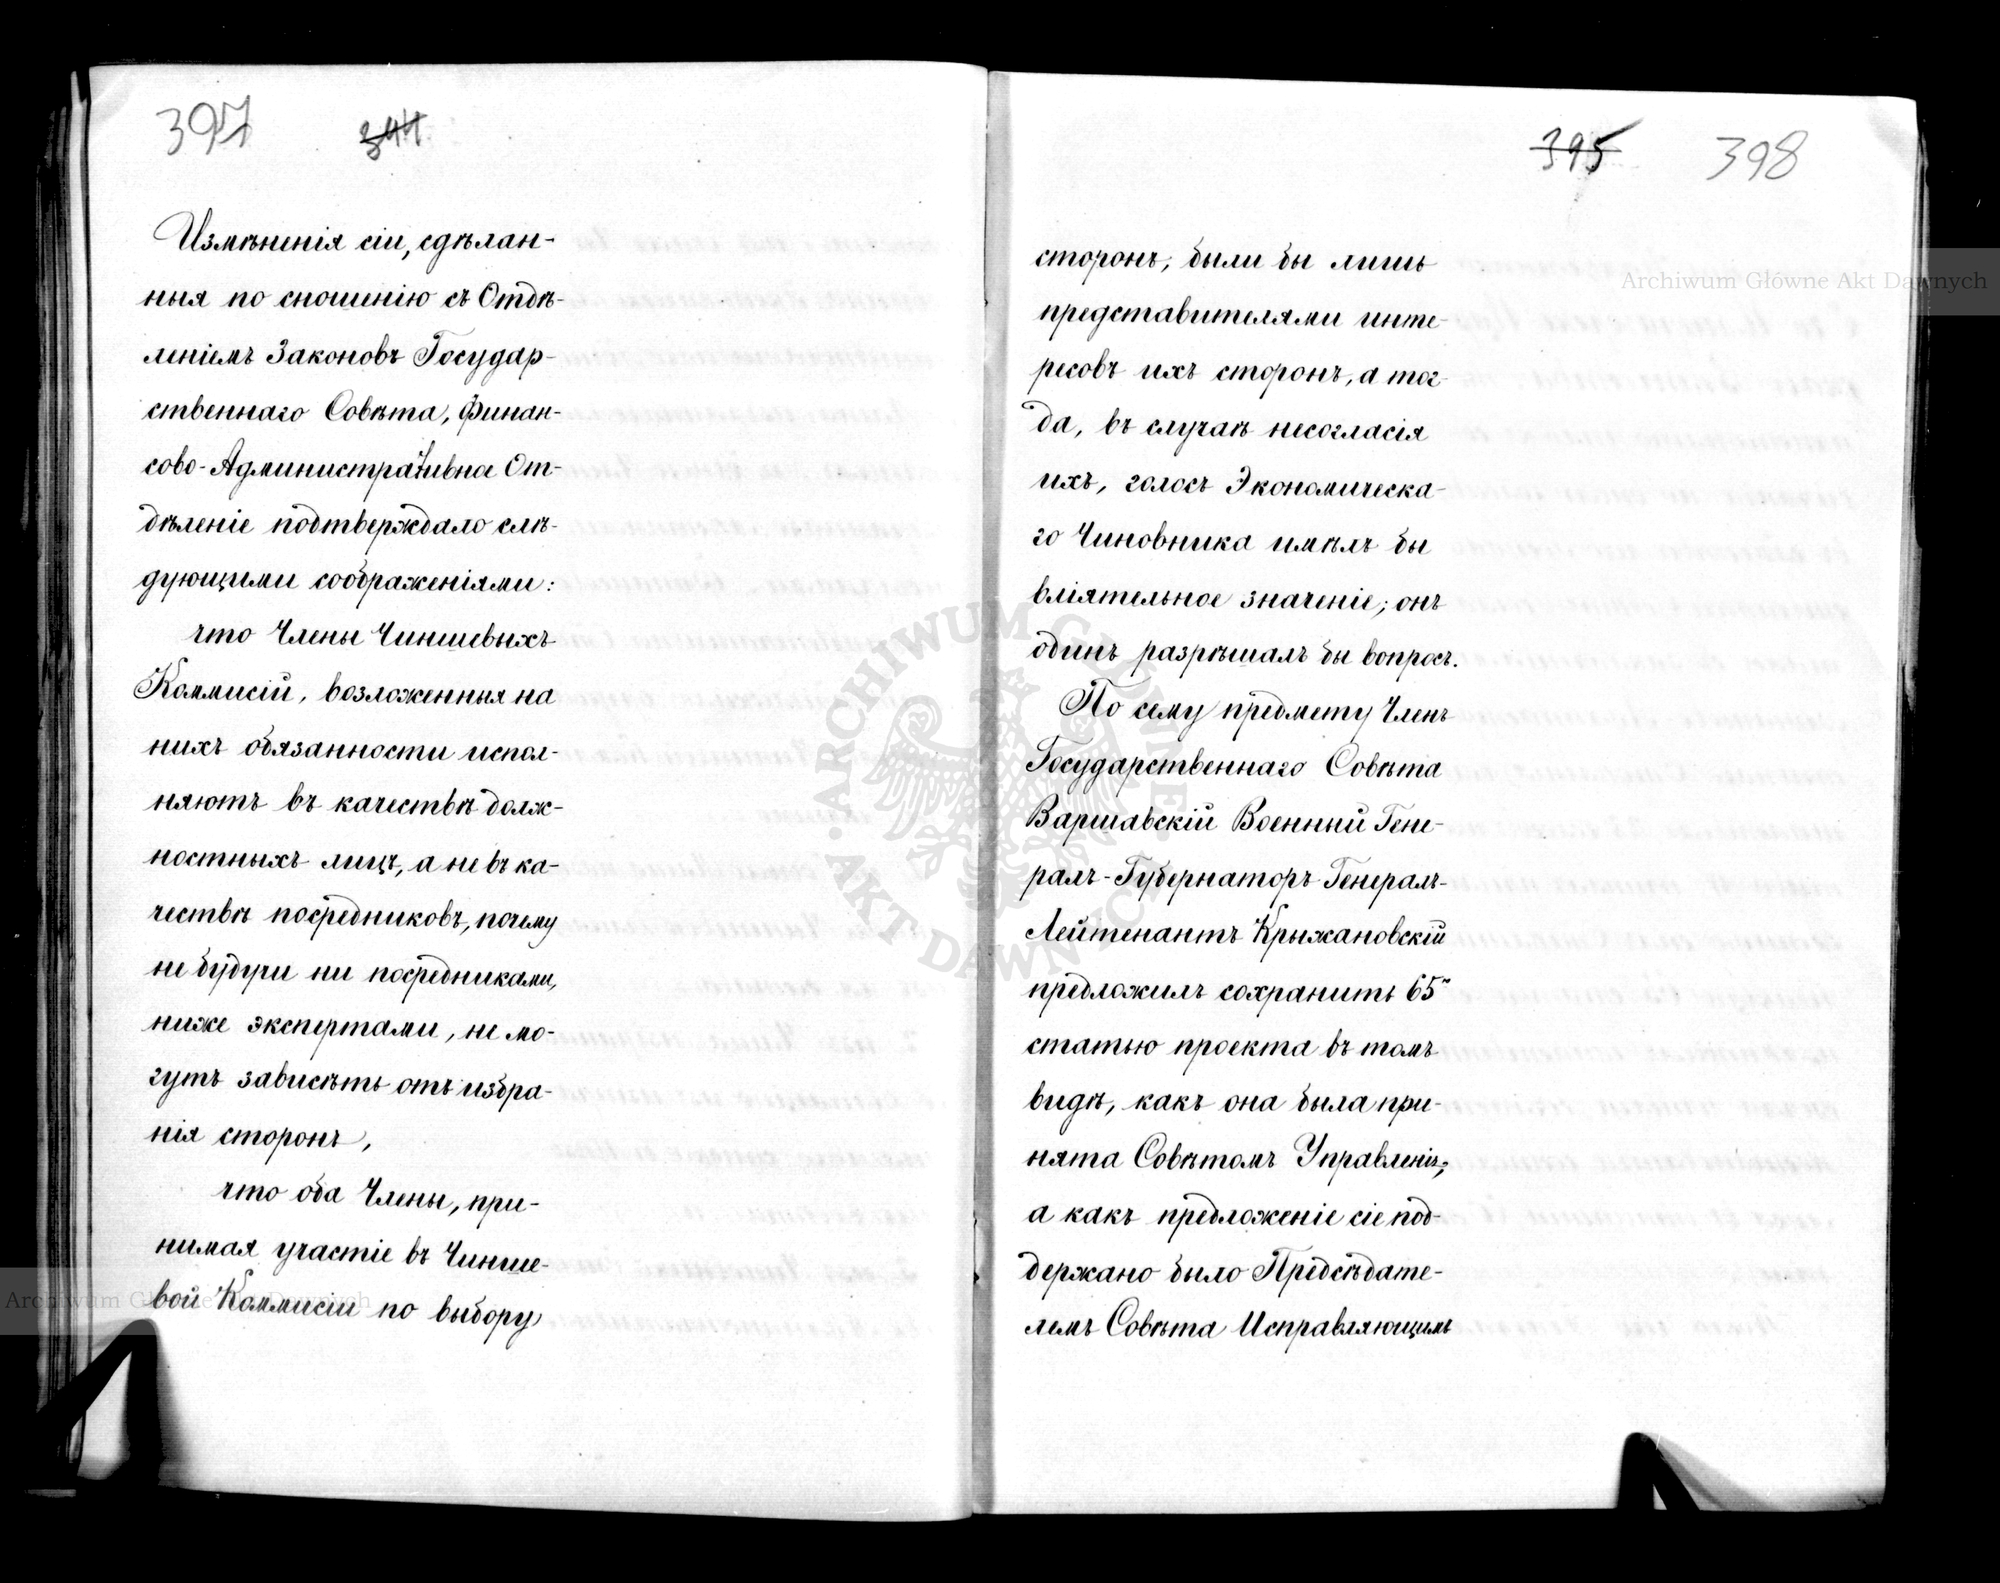 397 344
Измѣненія сіи, сдѣлан-
ныя по сношенію съ Отдѣ-
леніемъ Законовъ Государ-
ственнаго Совѣта, Финан-
сово-Административное От-
дѣленіе подтверждало слѣ-
дующими соображеніями:
что Члены Чиншевыхъ
Коммисій, возложенныя на
нихъ обязанности испол-
няютъ въ качествѣ долж-
ностныхъ лицъ, а не въ ка-
чествѣ посредниковъ, почему
не будучи ни посредниками,
ниже экспертами, не мо-
гутъ зависѣть отъ избра-
нія сторонъ,
что оба Члены, при-
нимая участіе въ Чинше-
вой Коммисіи по выбору
395 398
сторонъ, были бы лишь
представителями инте-
ресовъ ихъ сторонъ, а тог-
да, въ случаѣ несогласія
ихъ, голосъ Экономическа-
го Чиновника имѣлъ бы
вліятельное значеніе; онъ
одинъ разрѣшалъ бы вопросъ.
По сему предмету Членъ
Государственнаго Совѣта
Варшавскій Военный Гене-
ралъ-Губернаторъ Генералъ-
Лейтенантъ Крыжановскій
предложилъ сохранить 65ю
статью проекта въ томъ
видѣ, какъ она была при-
нята Совѣтомъ Управленія;
а какъ предложеніе сіе под-
держано было Предсѣдате-
лемъ Совѣта Исправляющимъ
Archiwum Główne Akt Dawnych
Archiwum Główne Akt Dawnych
ARCHIWUM GŁÓWNE AKT DAWNYCH